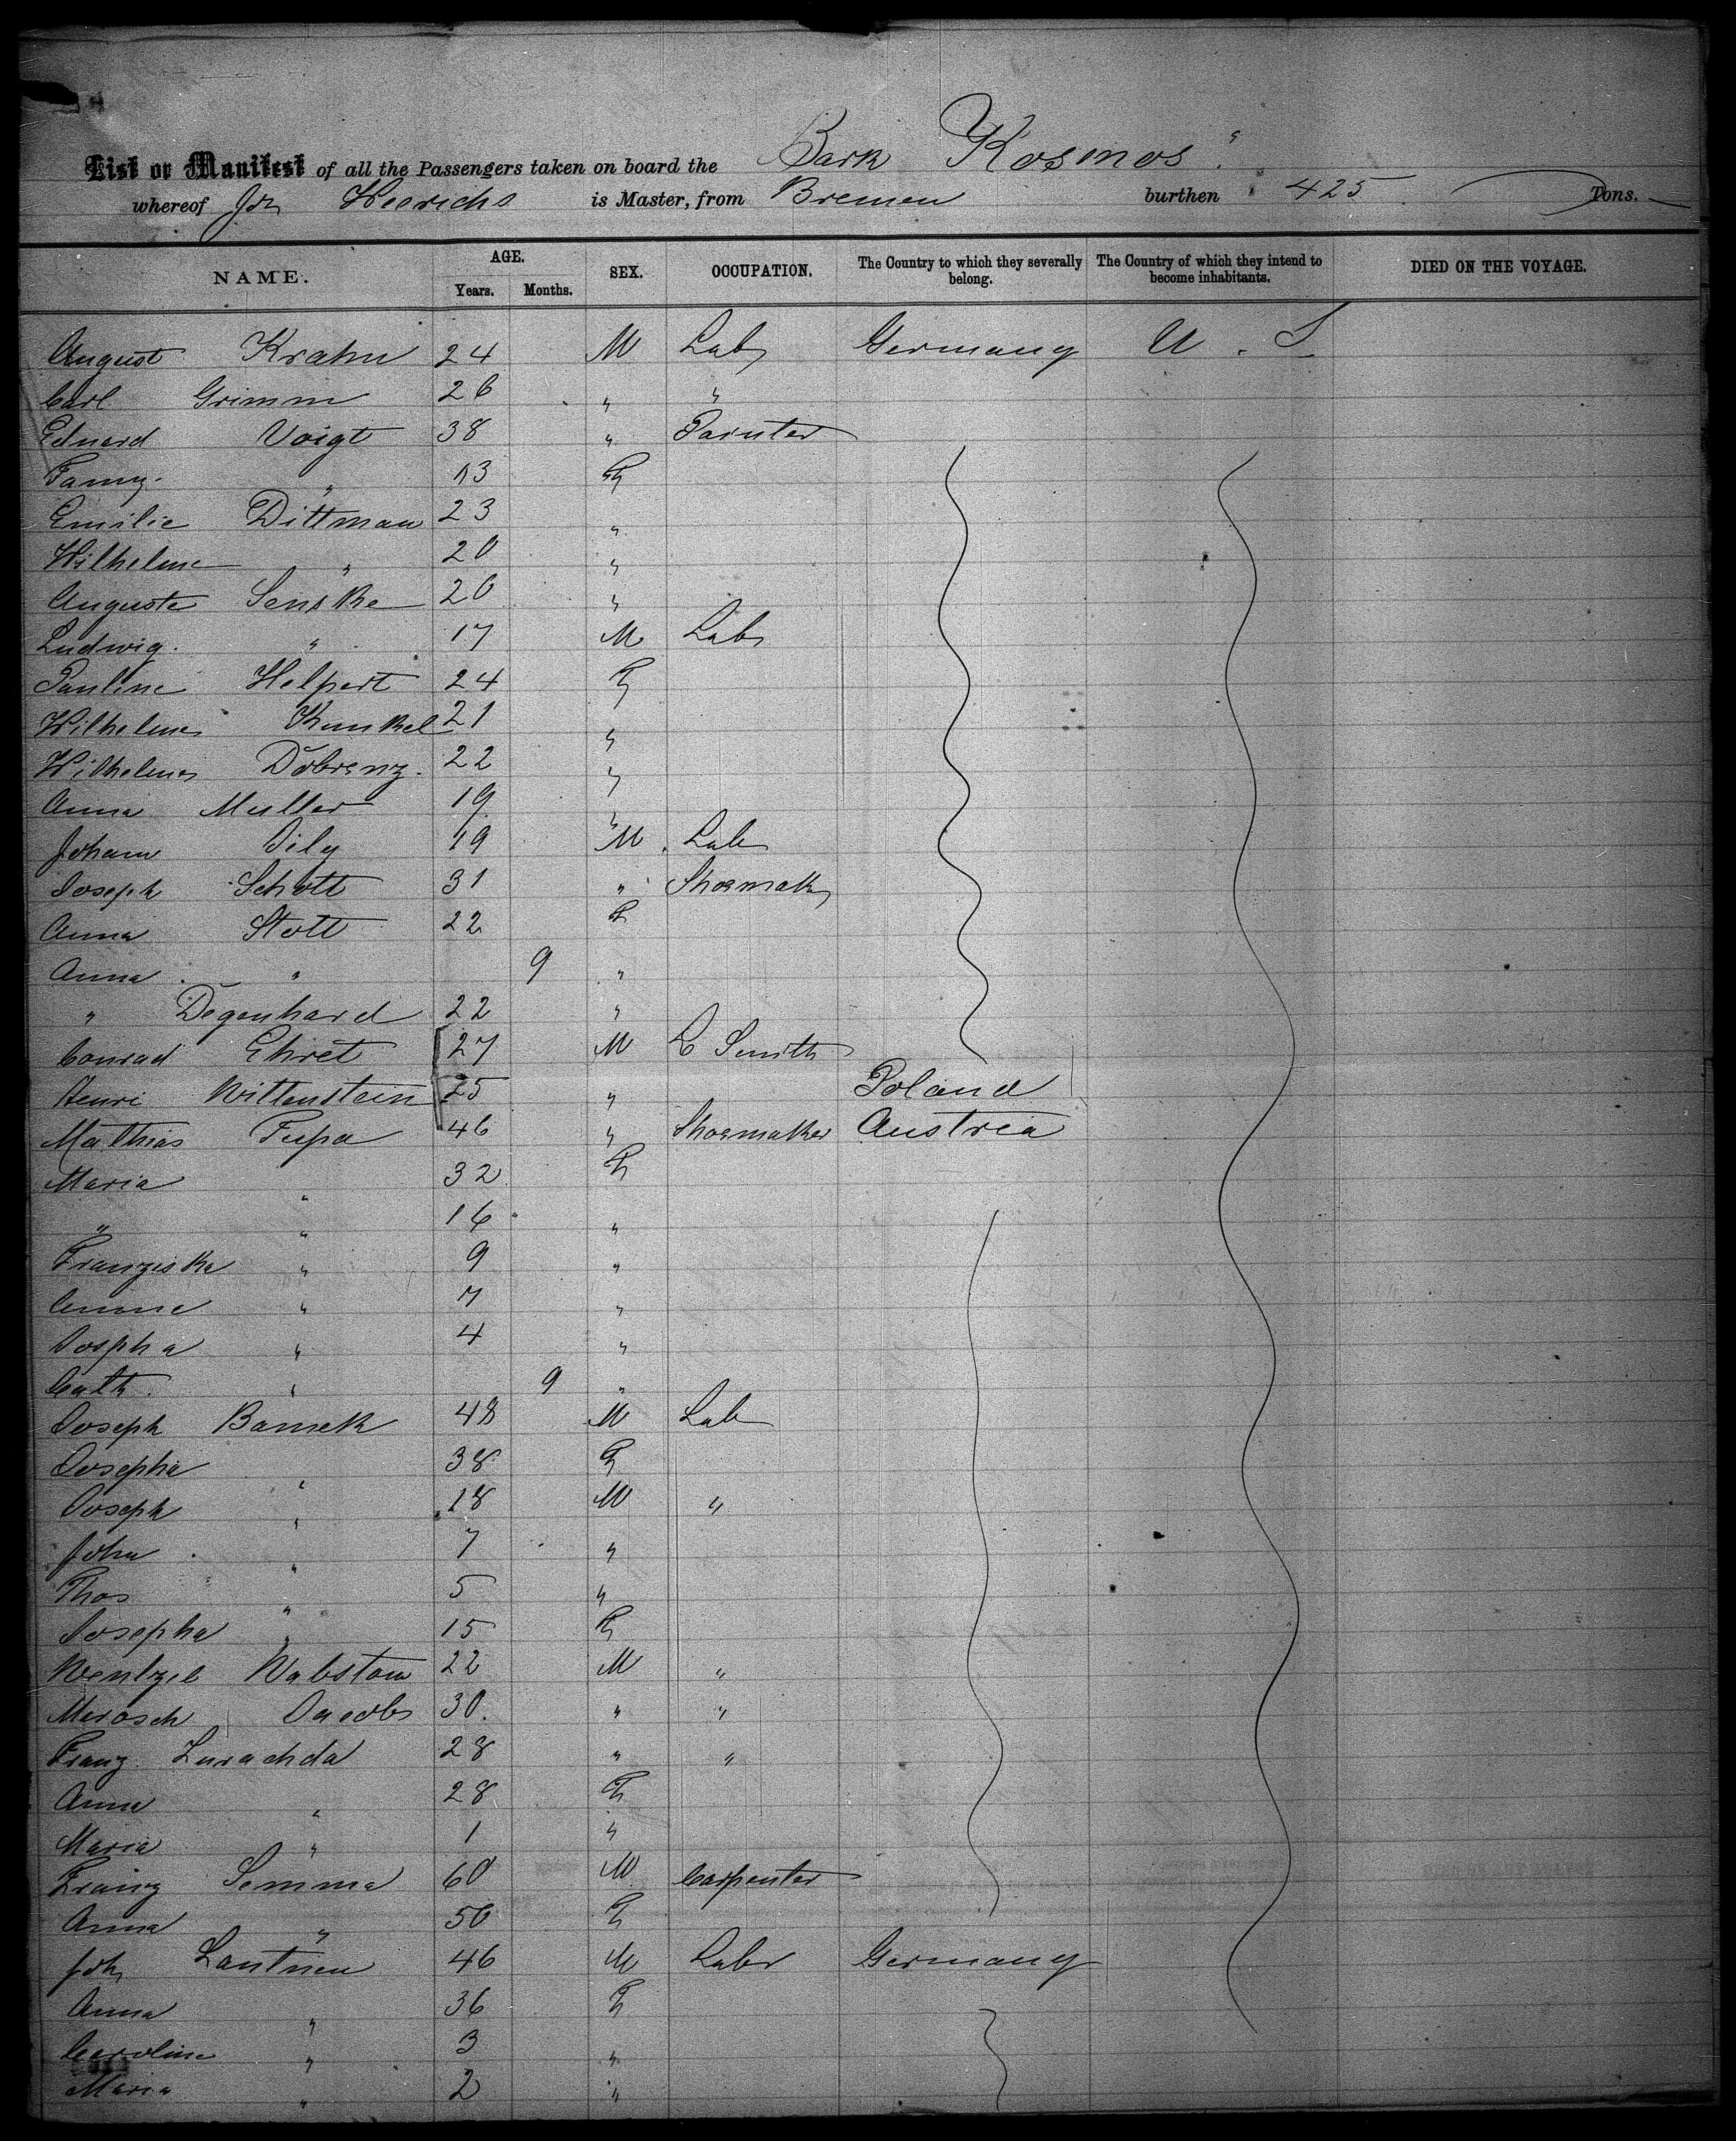 List or Manifest of all the Passengers taken on board the Bark Kosmos
whereof Joh Heerichs is Master, from Bremen burthen 425 Tons.
NAME. AGE. Years. Months. SEX. OCCUPATION. The Country to which they severally belong. The Country of which they intend to become inhabitants. DIED ON THE VOYAGE.
August Krahn 24 M Lab Germany U. S
Carl Grimm 26 " "
Eduard Voigt 38 " Painter
Fanny " 13 F
Emilie Dittman 23 "
Wilhelme " 20 "
Auguste Senske 20 "
Ludwig " 17 M Lab
Pauline Helpert 24 F
Wilhelme Kunkel 21 "
Wilhelme Dobrenz 22 "
Anna Muller 19 "
Johann Pily 19 M Lab
Joseph Schott 31 " Shoemak
Anna Stott 22 F
Anna " 9 "
" Degenhard 22 "
Conrad Ehret 27 M C Smith
Henri Wittenstein 25 " Poland
Mathias Pupa 46 " Shoemaker Austria
Maria " 32 F
" " 16 "
Franziska " 9 "
Anna " 7 "
Jospha " 4 "
Cath. " 9 "
Joseph Bamek 48 M Lab
Josepha " 38 F
Joseph " 18 M "
John " 7 "
Thos " 5 "
Josepha " 15 F
Wentzel Wabstow 22 M "
Merosch Jacobs 30. " "
Franz Lurachda 28 " "
Anna " 28 F
Maria " 1 "
Franz Semma 60 M Carpenter
Anna " 50 F
Joh Lantnen 46 M Labr Germany
Anna " 36 F
Caroline " 3 "
Maria " 2 "